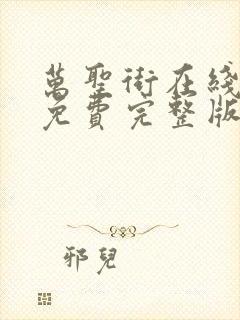 萬聖街在綫
免費完整版
邪兒